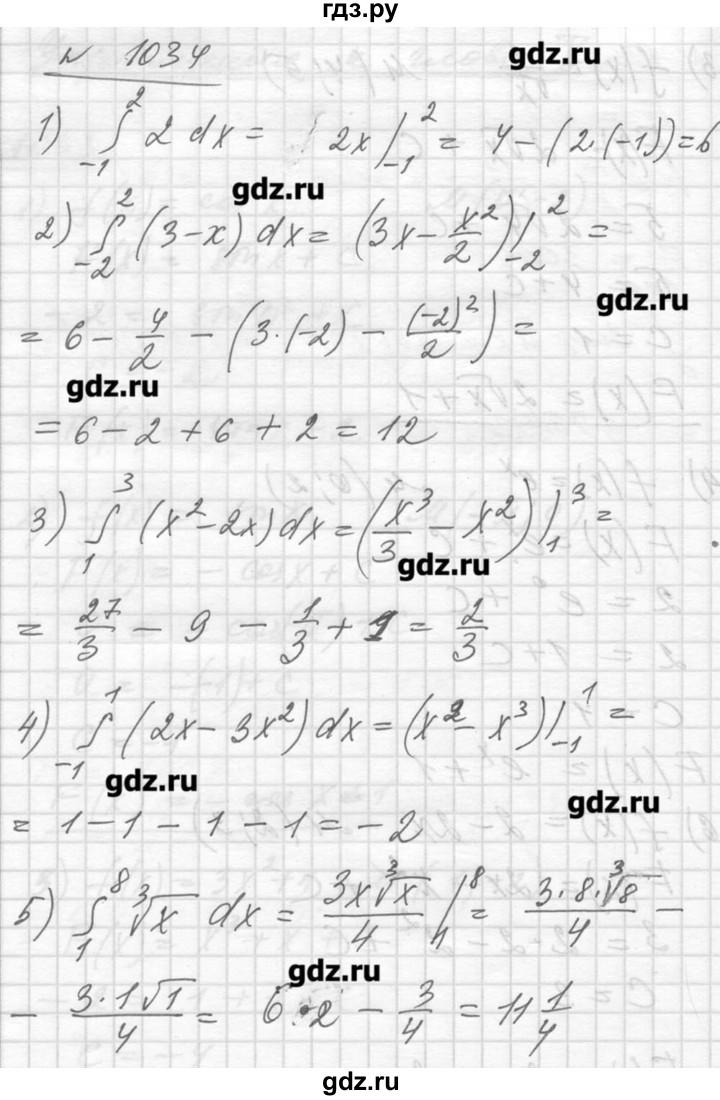 гдз.ру
№ 1034
gdz.ru
1) ∫₋₁² 2 dx = 2x |₋₁² = 4 - (2·(-1)) = 6
gdz.ru
2) ∫₋₂² (3-x) dx = (3x - x²/2) |₋₂² =
gdz.ru
= 6 - 4/2 - (3·(-2) - (-2)²/2) =
gdz.ru
= 6 - 2 + 6 + 2 = 12
3) ∫₁³ (x² - 2x) dx = (x³/3 - x²) |₁³ =
gdz.ru
= 27/3 - 9 - 1/3 + 1 = 2/3
4) ∫₋₁¹ (2x - 3x²) dx = (x² - x³) |₋₁¹ =
gdz.ru
gdz.ru
= 1 - 1 - 1 - 1 = -2
5) ∫₁⁸ ∛x dx = 3x∛x/4 |₁⁸ = 3·8·∛8/4 -
gdz.ru
- 3·1√1/4 = 6·2 - 3/4 = 11 1/4
gdz.ru